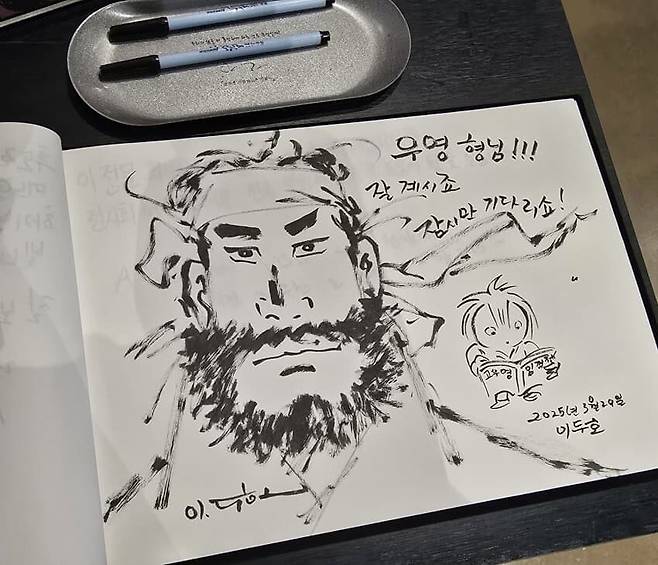 우영 형님!!!
잘 계시죠
잠시만 기다리쇼!
고우영
임꺽정
2025년 3월 29일
이두호
이. 두호